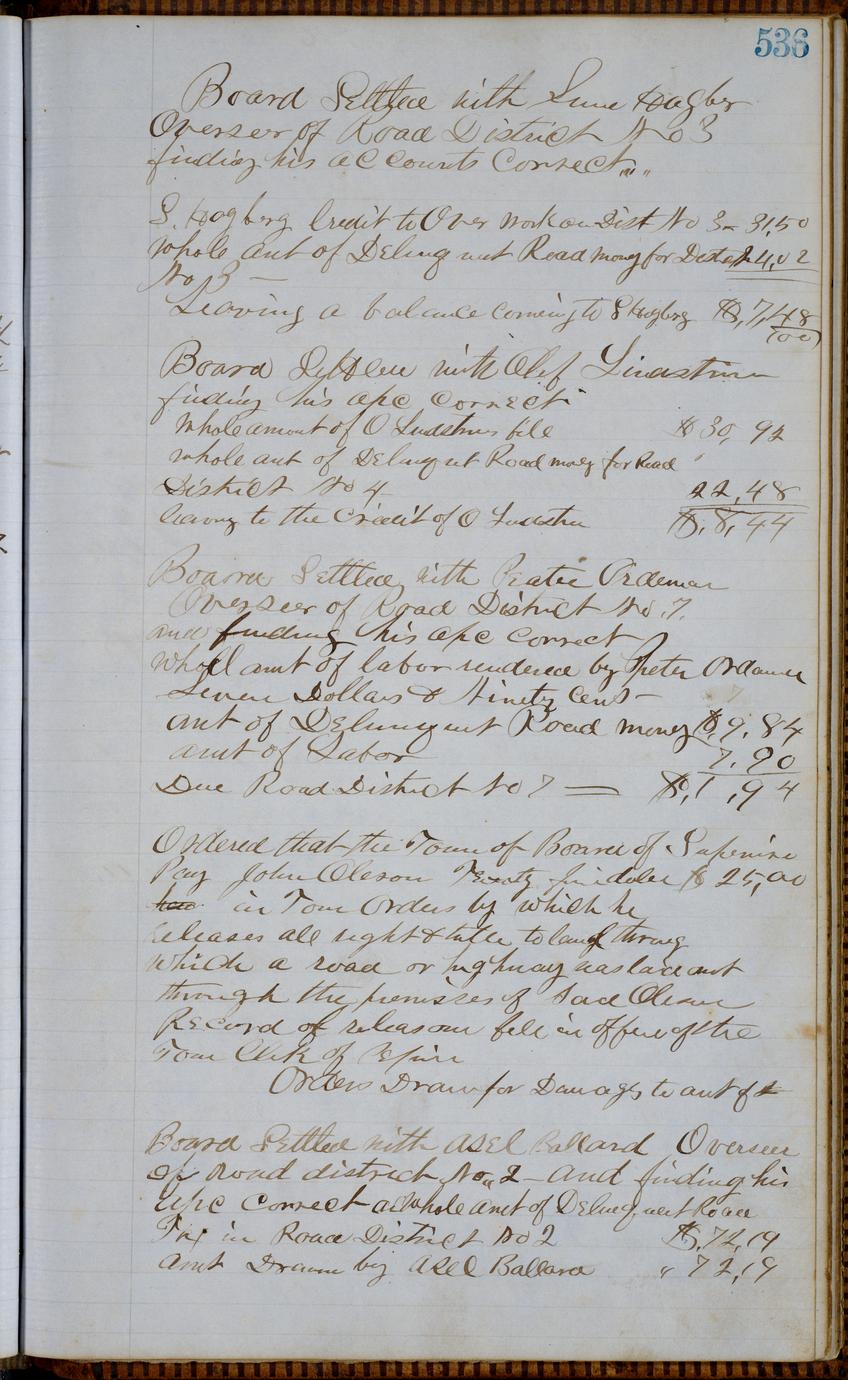 536
Board Settled with Hagber
Overseer of Road District No 3
finding his accounts Correct
S. Hogberg Credit to Over work on Dist No 3 - 31,50
whole amt of Delinquent Road money for District 24,02
No 3 —
Leaving a balance coming to S Hogberg $,7,48
Board Settled with Olof Lindstrum
finding his apc correct
whole amount of O Lindstrums bile $ 30, 92
whole amt of Delinquent Road money for Road
District No 4 22,48
leaving to the Credit of O Lindstru $,8,44
Board Settled with Peater Ordeman
Overseer of Road District No. 7.
and finding his apc correct
Wholl amt of labor rendered by Peter Ordamn
Seven Dollars & Ninety Cent —
amt of Delinquent Road money $,9,84
amt of Labor 7.90
Due Road District No 7 — $,1,94
Ordered that the Town of Board of
Pay John Oleson Twenty $ 25,00
in Town Orders by which he
releases all right & title to land throug
which a road or highway was laid out
through the premises of Oleson
Record of release on file in office of the
Town Clerk of Pepin
Orders Drawn for Damages to amt of
Board Settled with Asel Ballard Overseer
of Road district No. 2 — and finding his
apc correct whole amt of Delinquent Road
Tax in Road District No 2 $,72,19
amt Drawn by Asel Ballard " 72,19